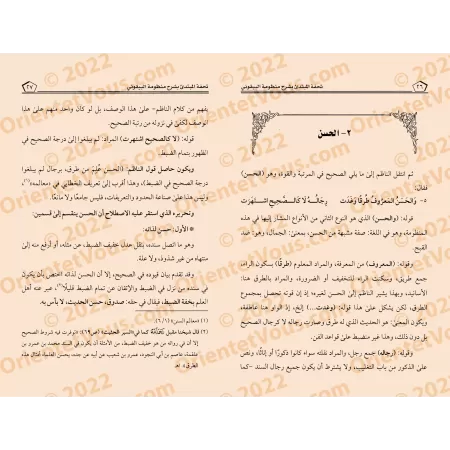 ٣٦ تحفة المبتدئ بشرح منظومة البيقوني
٢- الحسن
ثم انتقل الناظم إلى ما يلي الصحيح في المرتبة والقوة، وهو (الحسن)
فقال:
٥- وَالحَسَنُ المَعْرُوفُ طُرْقًا وَغَدَتْ رِجَالُهُ لَا كَالصَّحِيحِ اشْتَهَرَتْ
قوله: (والحسن) الذي هو النوع الثاني من الأنواع المشار إليها في هذه
المنظومة، وهو في اللغة: صفة مشبهة من الحسن، بمعنى: الجمال، وهو: ضد
القبح.
وقوله: (المعروف) من المعرفة، والمراد المعلوم (طرقًا) بسكون الراء،
جمع طريق، وسكنت الراء للتخفيف أو الضرورة، والمراد بالطرق هنا:
الأسانيد، وبهذا يشير الناظم إلى الحسن لغيره؛ إذ إن قوته تحصل بمجموع
الطرق، لكن يشكل على هذا قوله: (وغدت...) إلخ، إذ الواو هنا عاطفة،
ويكون المعنى: هو الحديث الذي له طرق وصارت رجاله لا كرجال الصحيح
بل دون ذلك، وهذا غير منضبط على قواعد الفن.
وقوله: (رجاله) جمع رجل، والمراد نقلته سواء كانوا ذكورًا أو إناثًا، ونص
على الذكور من باب التغليب، ولا يشترط أن يكون جميع رجال السند -كما
تحفة المبتدئ بشرح منظومة البيقوني ٣٧
يفهم من كلام الناظم- على هذا الوصف، بل لو كان واحد منهم على هذا
الوصف لكفى في نزوله من رتبة الصحيح.
قوله: (لا كالصحيح اشتهرت) المراد: لم يبلغوا إلى درجة الصحيح في
الظهور بتمام الضبط.
ويكون حاصل قول الناظم (الحسن عُلِمَ من طرق، برجال لم يبلغوا
درجة الصحيح في الضبط)، وهذا أقرب إلى تعريف الخطابي في «معالمه»(١)،
وليس على صناعة الحدود والتعريفات، فليس جامعًا ولا مانعًا.
وتحريره الذي استقر عليه الاصطلاح أن الحسن ينقسم إلى قسمين:
* الأول: حسن لذاته:
وهو ما اتصل سنده، بنقل عدل خفيف الضبط، عن مثله، أو أوقع منه إلى
منتهاه من غير شذوذ، ولا علة.
وقد تقدم بيان قيوده في الصحيح، إلا أن الحسن لذاته انخفض أحد
رواته في سنده ونزل في الضبط والإتقان عن تمام الضبط قليلًا(٢)، عبر عنه أهل
العلم بخفة الضبط، فيقال في حقه: صدوق، حسن الحديث، لا بأس به.
(١) «معالم السنن» (٦/١)
(٢) قال شيخنا مقبل رَحِمَهُ اللهُ كما في «السير الحثيث» (ص٦٩): «توفرت فيه شروط الصحيح
إلا أن في رواته من هو خفيف الضبط، من الأمثلة أن يكون في السند محمد بن عمرو بن
علقمة، عاصم بن أبي النجود، عمرو بن شعيب عن أبيه عن جده، بحسن العلماء لمثال هذه
الطرق» اهـ
© 2022
OrienteVous.com